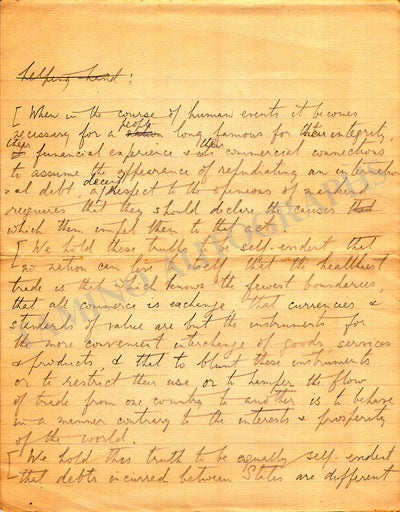 helping hand;
[ When in the course of human events it becomes
people
necessary for a nation long famous for their integrity,
their their
financial experience & its commercial connections
to assume the appearance of repudiating an internation
=al debt, a decent respect to the opinions of mankind
requires that they should declare the causes that
which them impel them to that act.
[ We hold these truths to be self-evident that
no nation can live to itself that the healthiest
trade is that which knows the fewest boundaries,
that all commerce is exchange that currencies &
standards of value are but the instruments for
the more convenient interchange of goods, services
& products, & that to blunt these instruments
or to restrict their use, or to hamper the flow
of trade from one country to another is to behave
in a manner contrary to the interests & prosperity
of the world.
[ We hold this truth to be equally self-evident
that debts incurred between States are different
TAMINO AUTOGRAPHS